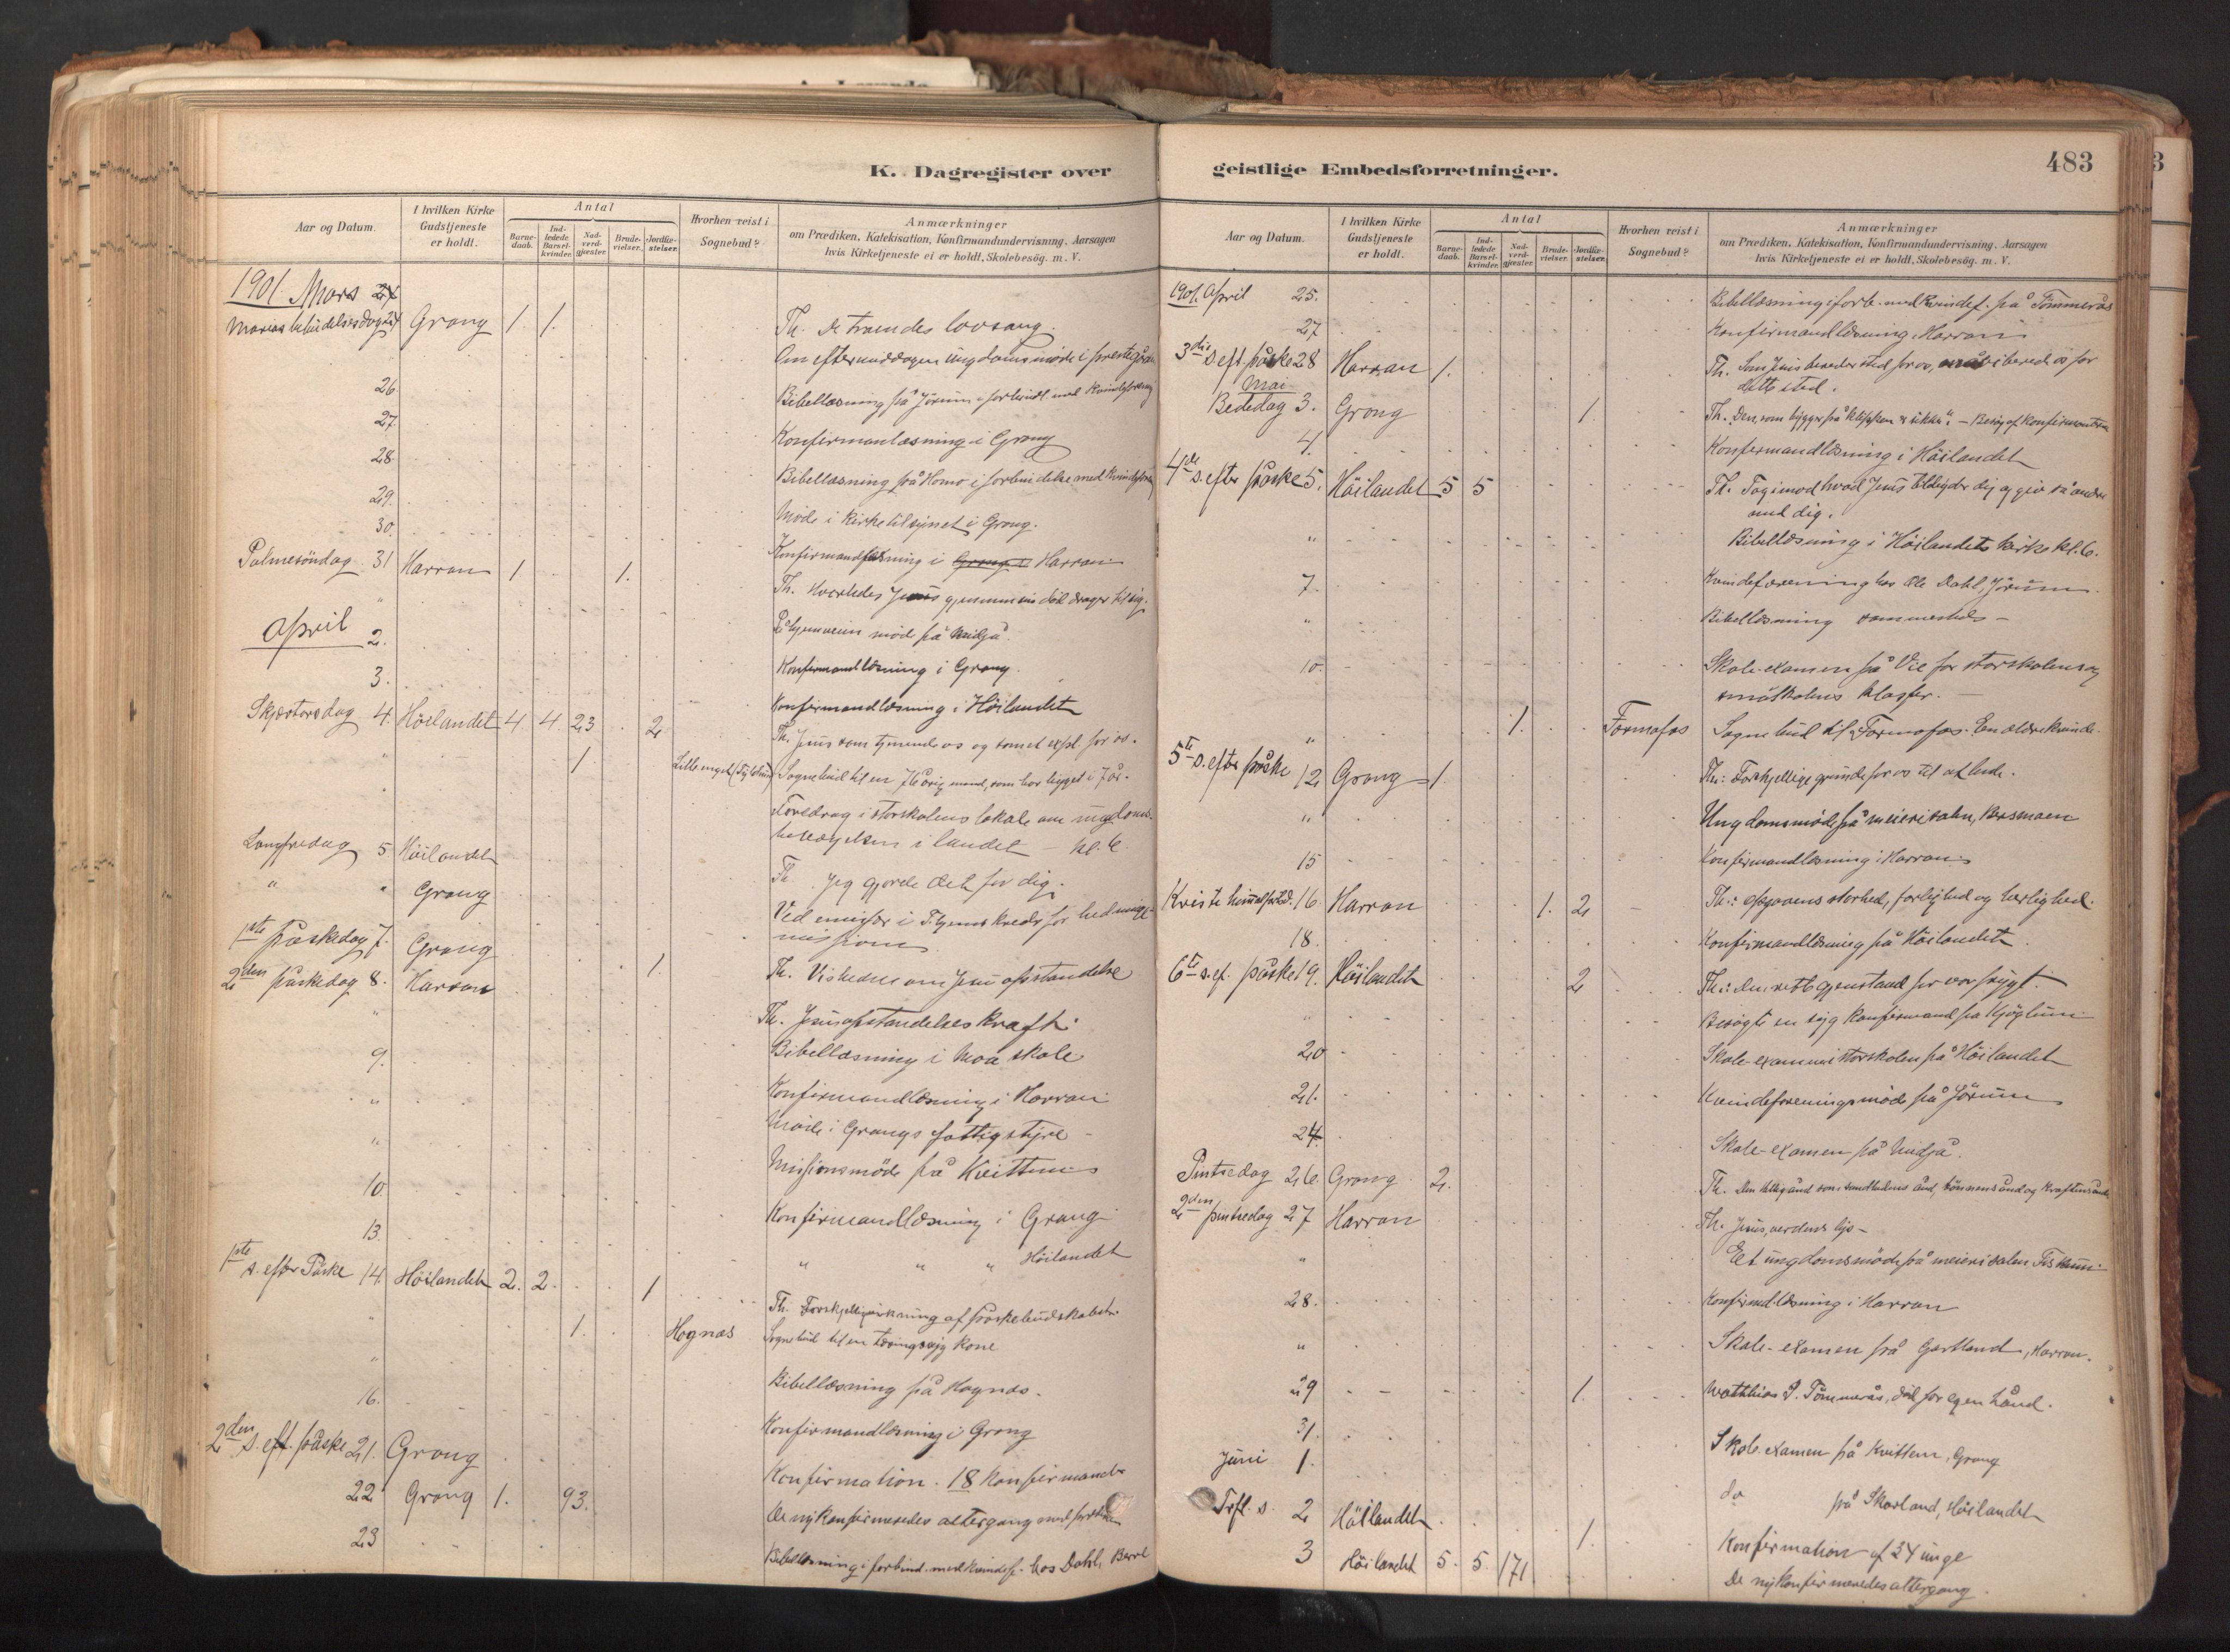 K. Dagregister over
Aar og Datum.
I hvilken Kirke Gudstjeneste er holdt.
Antal
Barne-daab.
Ind-ledede Barsel-kvinder.
Nad-verd-gjester.
Brude-vielser.
Jordfæ-stelser.
Hvorhen reist i Sognebud?
Anmærkninger
om Prædiken, Katekisation, Konfirmandundervisning, Aarsagen
hvis Kirketjeneste ei er holdt, Skolebesøg. m. V.
1901. Mars 24
Marias bebudelsesdag 24 Grong 1. 1. Th. De troendes lovsang.
Om eftermiddagen ungdomsmöde i prestegården
26. Bibellæsning på Jörum i forbind. med kvindeforening
27. Konfirmanlæsning i Grong
28. Bibellæsning på Homo i forbindelse med kvindeforen
29. Möde i kirketilsynet i Grong.
30. Konfirmandlæsning i Harran
Palmesöndag 31 Harran 1. 1. Th. Hvorledes Jesus gjennem sin död drager til sig.
" möde på
April 2. Konfirmandlæsning i Grong.
3. Konfirmandlæsning i Höilandet
Skjærtorsdag 4. Höilandet 4. 4 23 2 Th. Jesus som tjenende os og som et expl. for os.
" 1 Sognebud til en 76 årig mand, som har ligget i 7 år.
" Foredrag i storskolens lokale om ungdoms-
bevægelsen i landet - kl. 6.
Langfredag 5 Höilandet Th. Jeg gjorde det for dig.
" " Grong
1ste påskedag 7. Grong 1. Th. Vidnerne om Jesu opstandelse
2den påskedag 8. Harran Th. Jesu opstandelses kraft.
" Bibellæsning i Moa skole
9. Konfirmandlæsning i Harran
" Möde i Grongs fattigstyre -
" Missionsmöde på Kvittem
10. Konfirmandlæsning i Grong
13. " " " Höilandet
1ste s. efter Påske 14. Höilandet 2. 2. 1 Th. Forskjellig virkning af påskebudskabet.
" 1. Hognæs Sognebud til en tæringssyg kone
" Bibellæsning på Hognæs.
16. Konfirmandlæsning i Grong
2den s. eft. påske 21. Grong Konfirmation. 18 konfirmander
22 Grong 1. 93. De nykonfirmeredes altergang
23 Bibellæsning i forbind. med kvindef. hos Dahl,
geistlige Embedsforretninger.
483
Aar og Datum.
I hvilken Kirke Gudstjeneste er holdt.
Antal
Barne-daab.
Ind-ledede Barsel-kvinder.
Nad-verd-gjester.
Brude-vielser.
Jordfæ-stelser.
Hvorhen reist i Sognebud?
Anmærkninger
om Prædiken, Katekisation, Konfirmandundervisning, Aarsagen
hvis Kirketjeneste ei er holdt, Skolebesög. m. V.
1901. April 25. Bibellæsning i forb. med kvindef. på Tömmerås
27 Konfirmandlæsning i Harran
3die s. eft. påske 28 Harran 1. Th. Som Jesus bereder sted for os, må vi beredes for
dette sted.
Mai
Bededag 3. Grong 1. Th. Den, som bygger på klippen er sikker. - Besög af konfirmanterne
4. Konfirmandlæsning i Höilandet
4de s. efter påske 5. Höilandet 5 5 Th. Tag imod hvad Jesus tilbyder dig og giv så andre
med dig.
" Bibellæsning i Höilandets kirke kl. 6.
7. Kvindeforening hos Ole Dahl, Jörum.
" Bibellæsning sammesteds -
10. Skole-examen på Vie for storskolens og
småskolens klasser. -
" 1. Formofos Sognebud til Formofos. En ældre kvinde.
5te s. efter påske 12 Grong 1. Th: Forskjellige grunde for os til at bede.
" Ungdomsmöde på meierisalen,
15 Konfirmandlæsning i Harran
Kristi himmelfartsd. 16. Harran 1. 2 Th.: Opgavens storhed, farlighed og herlighed.
18. Konfirmandlæsning på Höilandet.
6te s. ef. påske 19. Höilandet 2 Th.: Den rette gjenstand for vor frygt.
" Besögte en syg konfirmand på Kjöglum
20 Skole-examen i storskolen på Höilandet
21. Kvindeforeningsmöde på Jörum
24. Skole-examen på
Pintsedag 26. Grong 2. Th. Den hellig ånd som sandhedens ånd, bönnens ånd og kraftens ånd.
2den pintsedag 27 Harran Th. Jesus, verdens lys -
" Et ungdomsmöde på meierisalen Fiskum
28. Konfirmd. læsning i Harran
" Skole-examen på Gartland, Harran.
29 1. Matthias P. Tömmerås, död for egen hånd.
31. Skole-examen på Kvittem, Grong
Juni 1. do på Skarland, Höilandet
Trft. s. 2 Höilandet 1. Konfirmation af 34 unge
3 Höilandet 5. 5. 171 De nykonfirmeredes altergang.